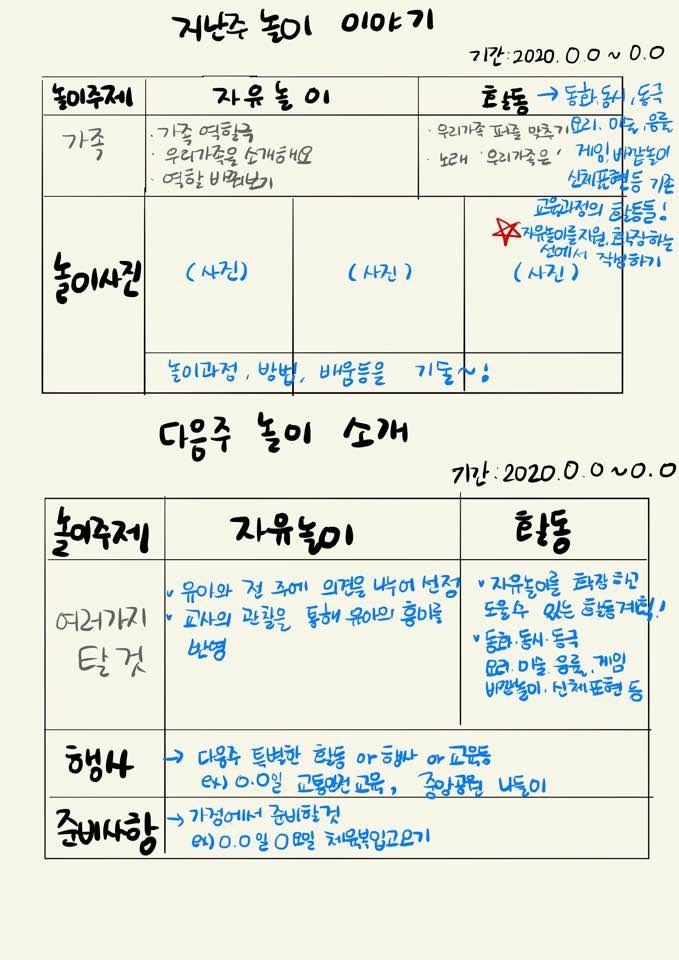 지난주 놀이 이야기
기간:2020.0.0~0.0
놀이주제 자유놀이 활동 → 동화.동시.동극
요리.미술.음률
게임.바깥놀이
신체표현등 기존
교육과정의 활동들!
☆자유놀이를지원, 확장하는
선에서 작성하기
가족
· 가족 역할극
· 우리가족을 소개해요
· 역할 바꿔보기
· 우리가족 퍼즐 맞추기
· 노래 '우리가족은'
놀이사진
(사진) (사진) (사진)
놀이과정, 방법, 배움등을 기술~!
다음주 놀이 소개
기간:2020.0.0~0.0
놀이주제 자유놀이 활동
여러가지
탈것
· 유아와 전 주에 의견을 나누어 선정
· 교사의 관찰을 통해 유아의 흥미를
반영
· 자유놀이를 확장하고
도울수 있는 활동계획!
· 동화.동시.동극
요리.미술.음률.게임
바깥놀이.신체표현 등
행사 → 다음주 특별한 활동 or 행사 or 교육등
ex) 0.0일 교통안전교육, 중앙공원 나들이
준비사항 → 가정에서 준비할것
ex) 0.0일 0요일 체육복입고오기